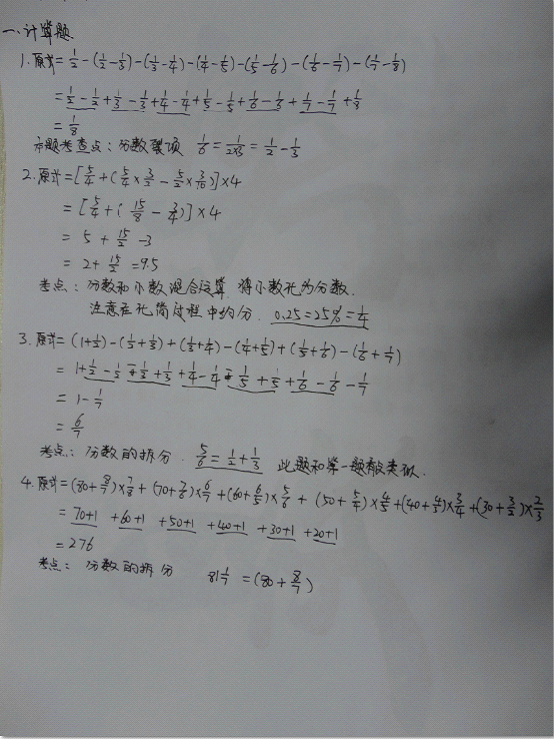 一、计算题
1.原式=1/2-(1/2-1/3)-(1/3-1/4)-(1/4-1/5)-(1/5-1/6)-(1/6-1/7)-(1/7-1/8)
=1/2-1/2+1/3-1/3+1/4-1/4+1/5-1/5+1/6-1/6+1/7-1/7+1/8
=1/8
本题考查点:分数裂项 1/6=1/2×3=1/2-1/3
2.原式=[5/4+(5/4×3/2-5/2×3/10)]×4
=[5/4+(15/8-3/4)]×4
=5+15/2-3
=2+15/2=9.5
考点:分数和小数混合运算,将小数化为分数.
注意在化简过程中约分.0.25=25%=1/4
3.原式=(1+1/2)-(1/2+1/3)+(1/3+1/4)-(1/4+1/5)+(1/5+1/6)-(1/6+1/7)
=1+1/2-1/2-1/3+1/3+1/4-1/4-1/5+1/5+1/6-1/6-1/7
=1-1/7
=6/7
考点:分数的拆分.5/6=1/2+1/3 此题和第一题有类似.
4.原式=(80+8/7)×7/8+(70+7/6)×6/7+(60+6/5)×5/6+(50+5/4)×4/5+(40+4/3)×3/4+(30+3/2)×2/3
=70+1+60+1+50+1+40+1+30+1+20+1
=276
考点:分数的拆分 81 1/7=(80+8/7)